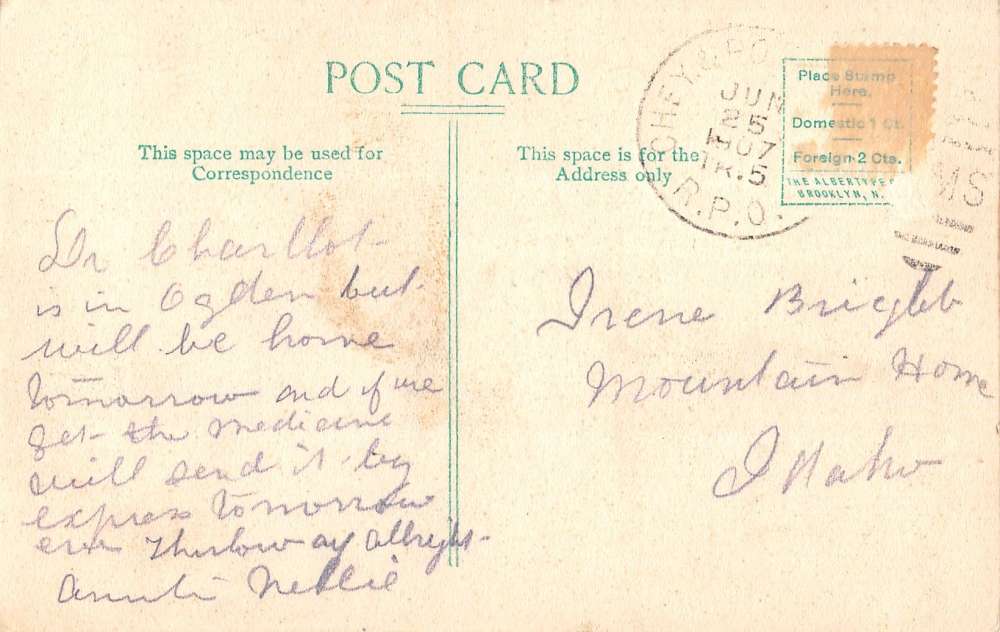 POST CARD
This space may be used for
Correspondence
This space is for the
Address only
CHEY. & PO
JUN
25
1907
TR. 5
R.P.O.
Place Stamp
Here.
Domestic 1 Ct.
Foreign 2 Cts.
THE ALBERTYPE
BROOKLYN, N.
MS
Dr Charllot
is in Ogden but
will be home
tomorrow and if we
get the medicine
will send it by
express tomorrow
eve allright-
Aunti Nellie
Irene Bright
Mountain Home
Idaho